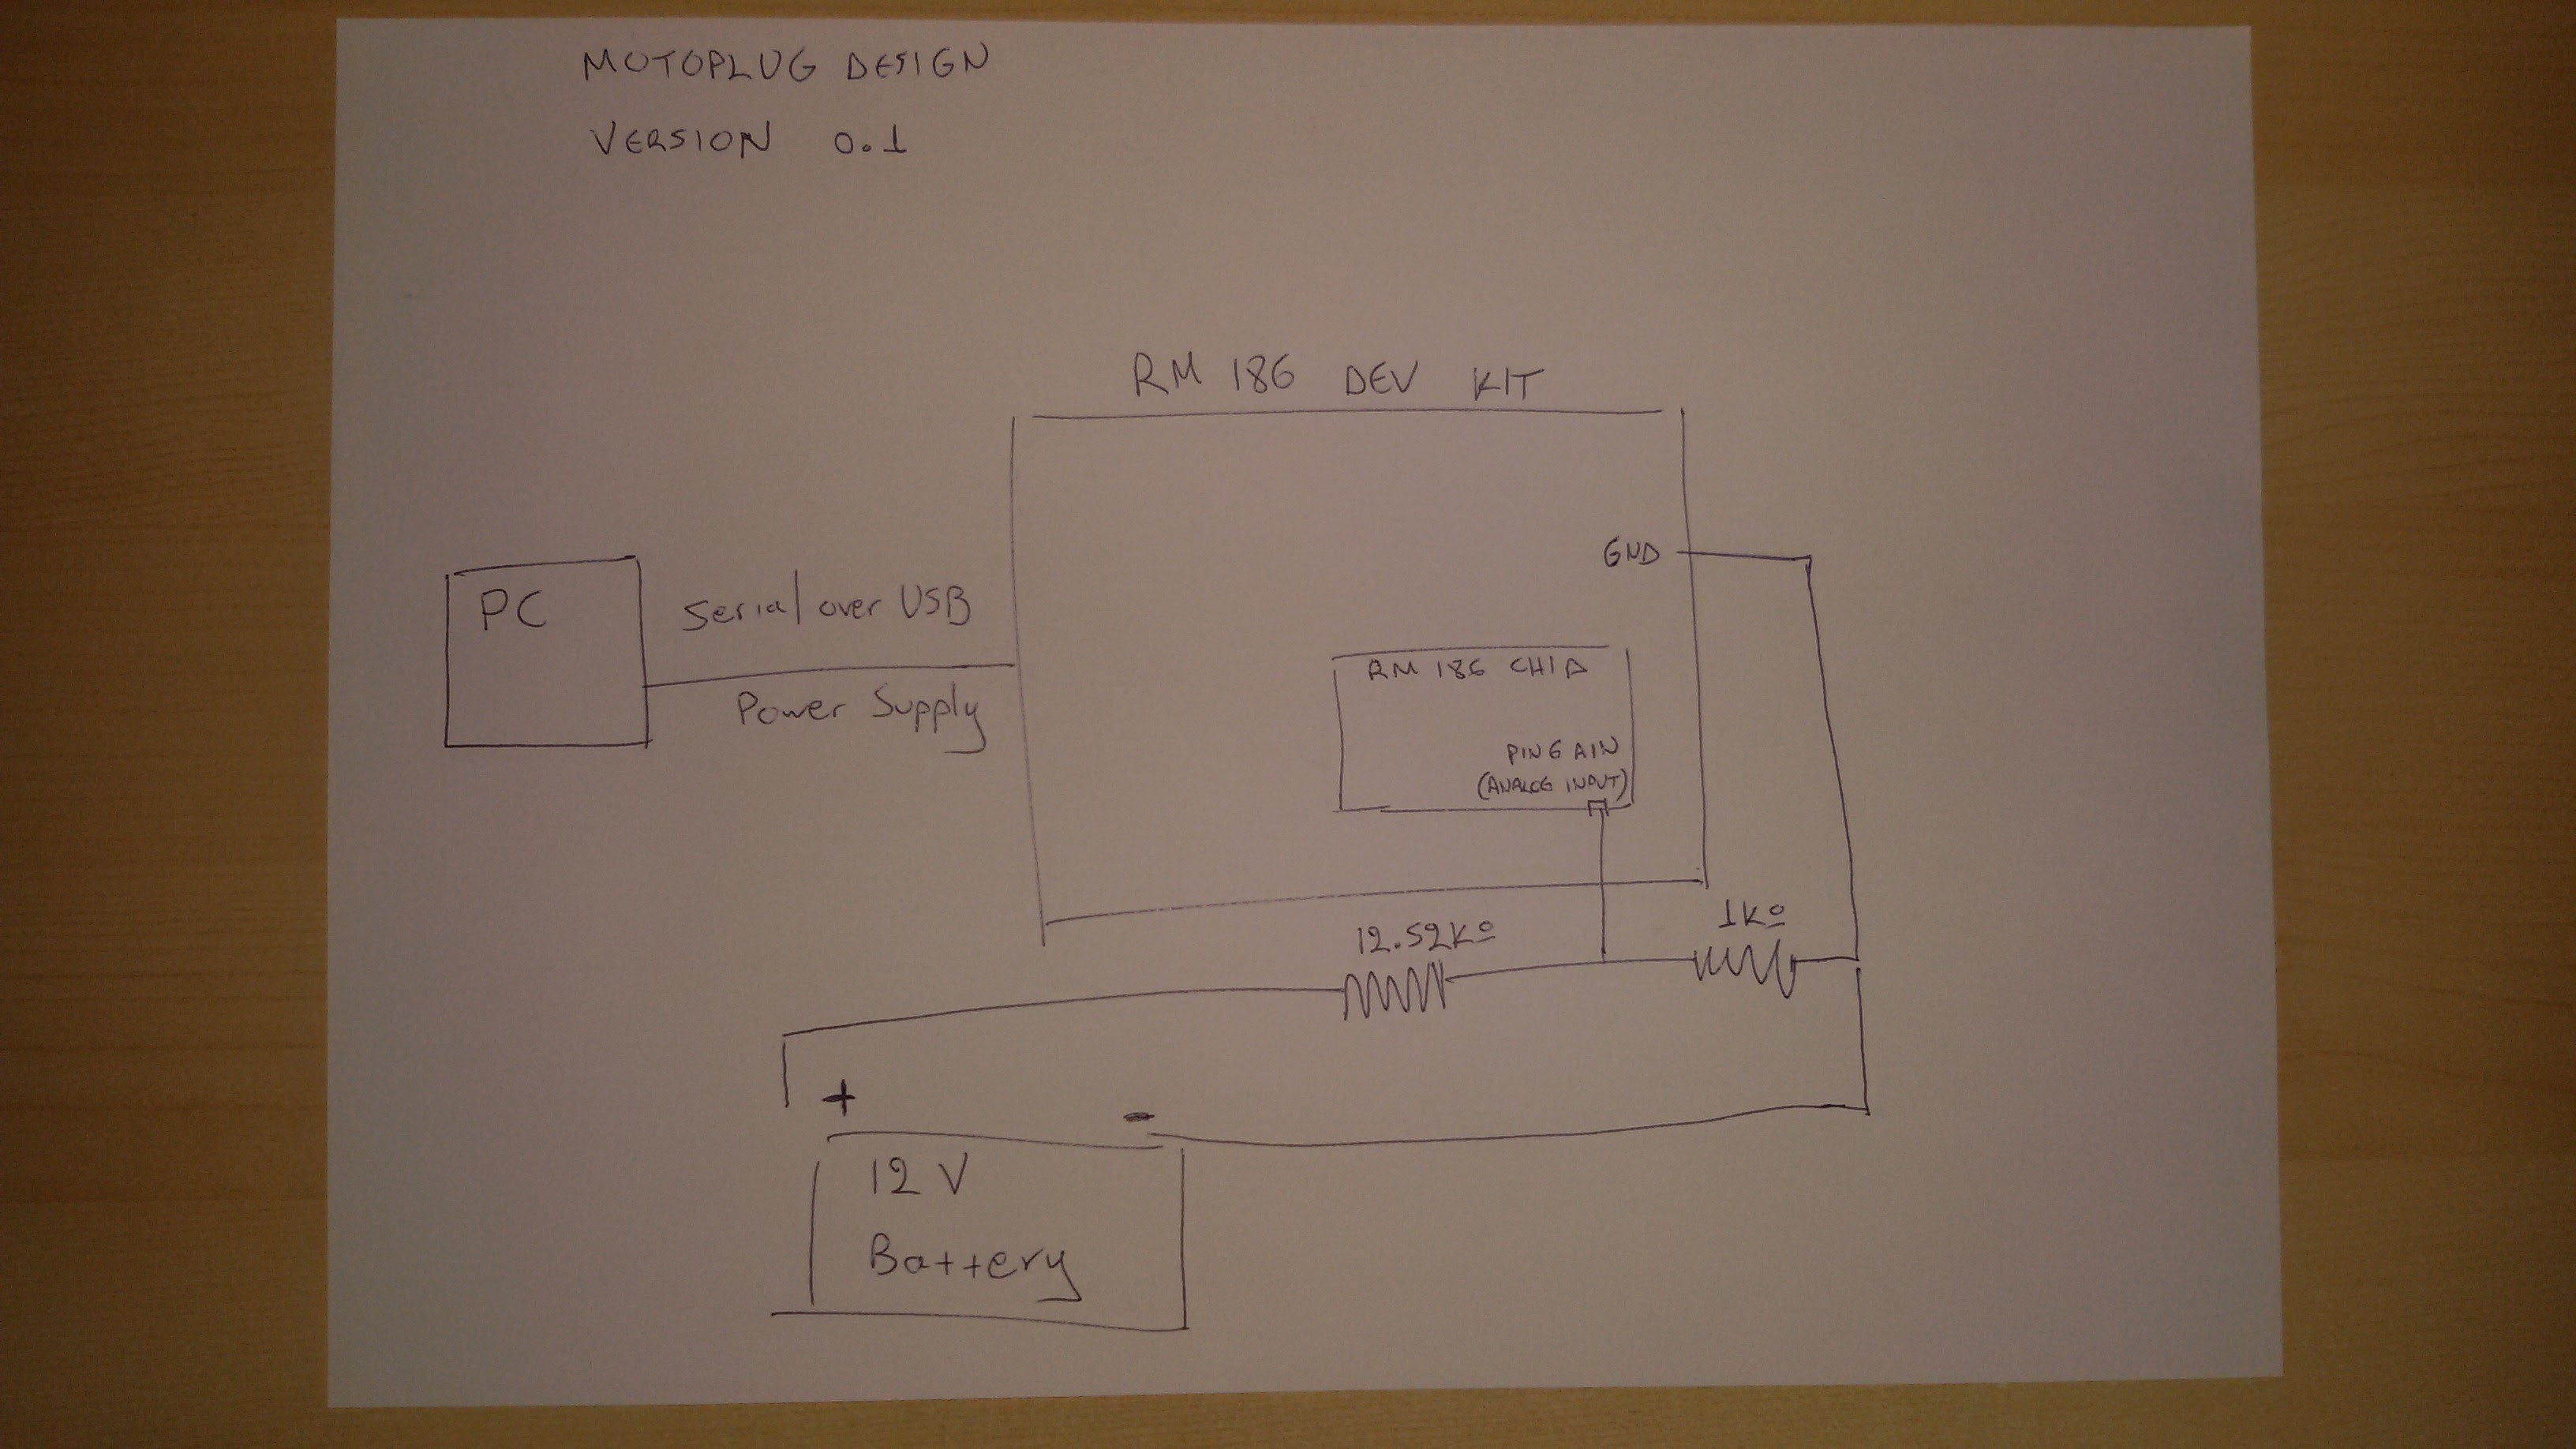 MOTOPLUG DESIGN
VERSION 0.1
RM 186 DEV KIT
GND
PC
Serial over USB
Power Supply
RM 186 CHIP
PIN 6 AIN
(ANALOG INPUT)
12.52Kº
1Kº
+
-
12 V
Battery